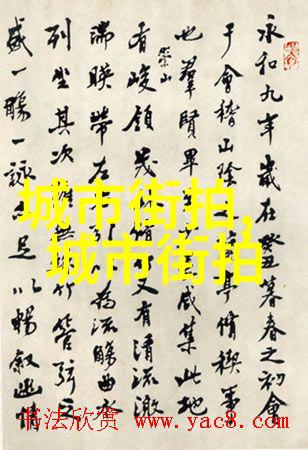 永和九年歲在癸丑暮春之初會
于會稽山陰亭脩稧事
也羣賢畢咸集此地
有崇山峻領茂脩又有清流激
湍暎帶左引為流觴曲水
列坐其次無竹管弦之
盛一觴一詠足以暢敘幽情
城市街拍,
城市街拍
书法欣赏 www.yac8.com